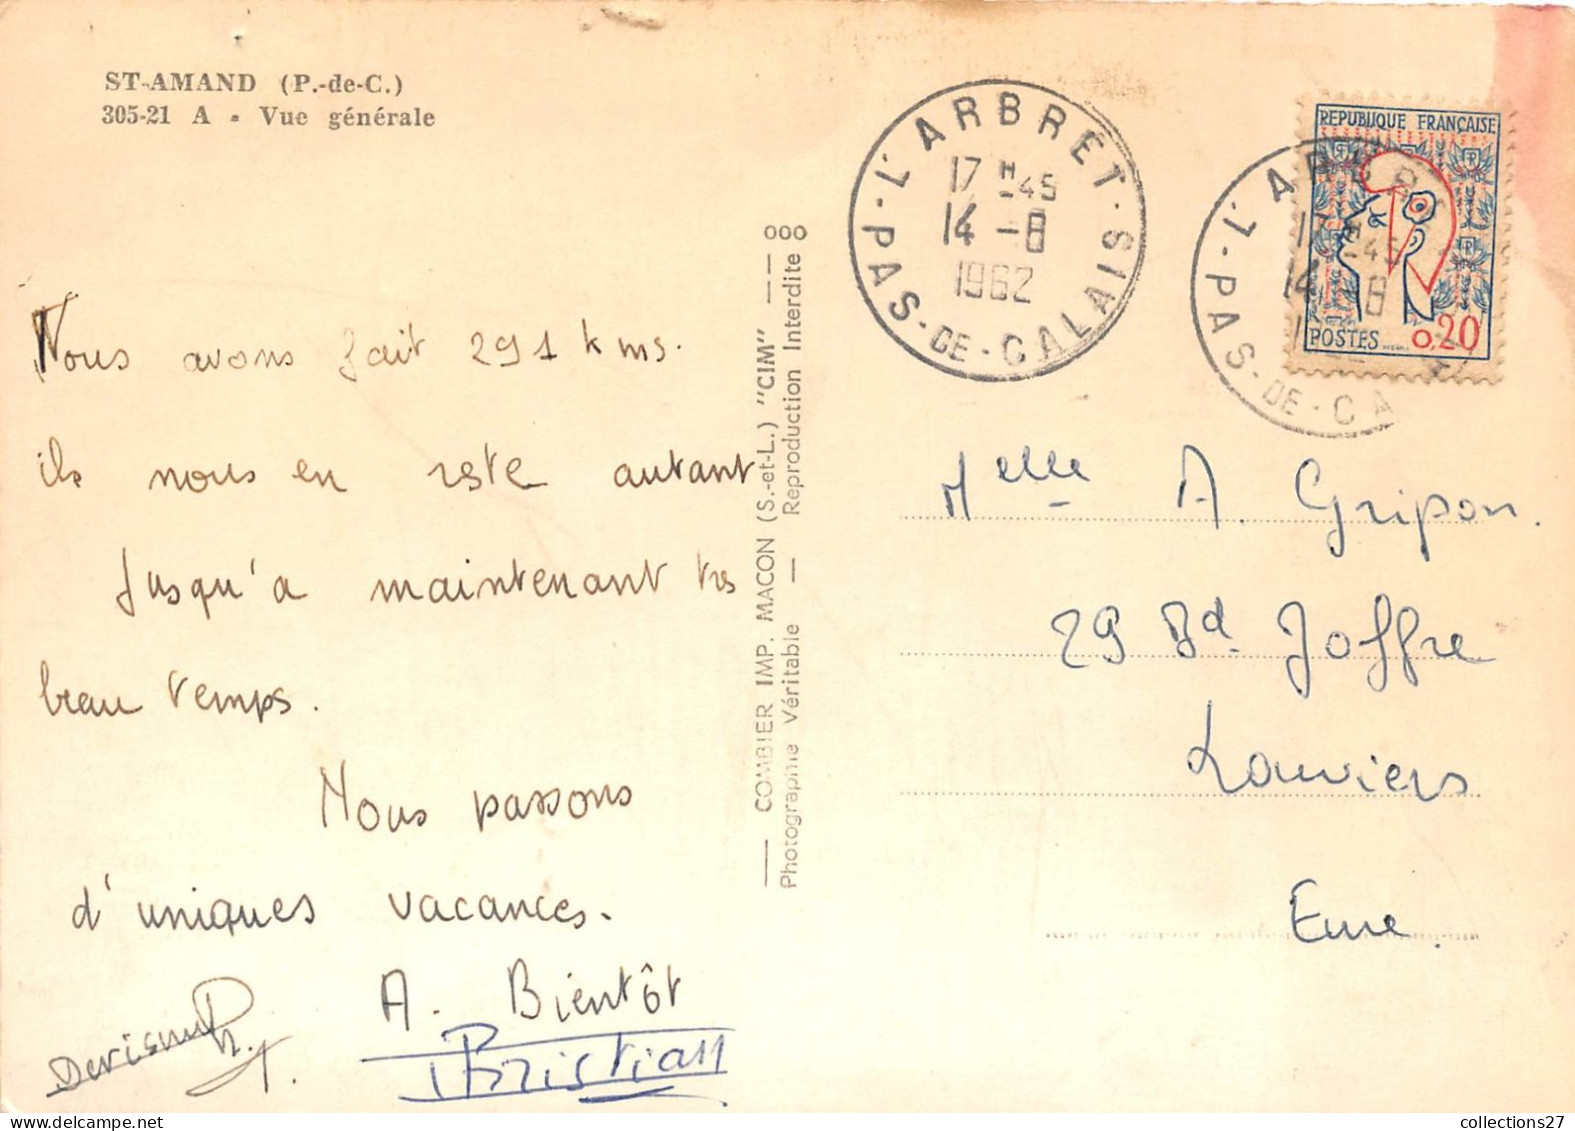 ST-AMAND (P.-de-C.)
305-21 A - Vue générale
Nous avons fait 291 kms.
ils nous en reste autant
Jusqu'a maintenant tres
beau temps.
Nous passons
d'uniques vacances.
A. Bientôt
COMBIER IMP. MACON (S.-et-L.) "CIM"
Photographie Véritable — Reproduction Interdite
L'ARBRET
17 H -45
14 -8
1962
PAS-DE-CALAIS
REPUBLIQUE FRANÇAISE
POSTES 0,20
L'ARBRET
17 H -45
14 -8
PAS-DE-CA
Melle A. Gripon.
29 Bd. Joffre
Louviers
Eure.
collections27